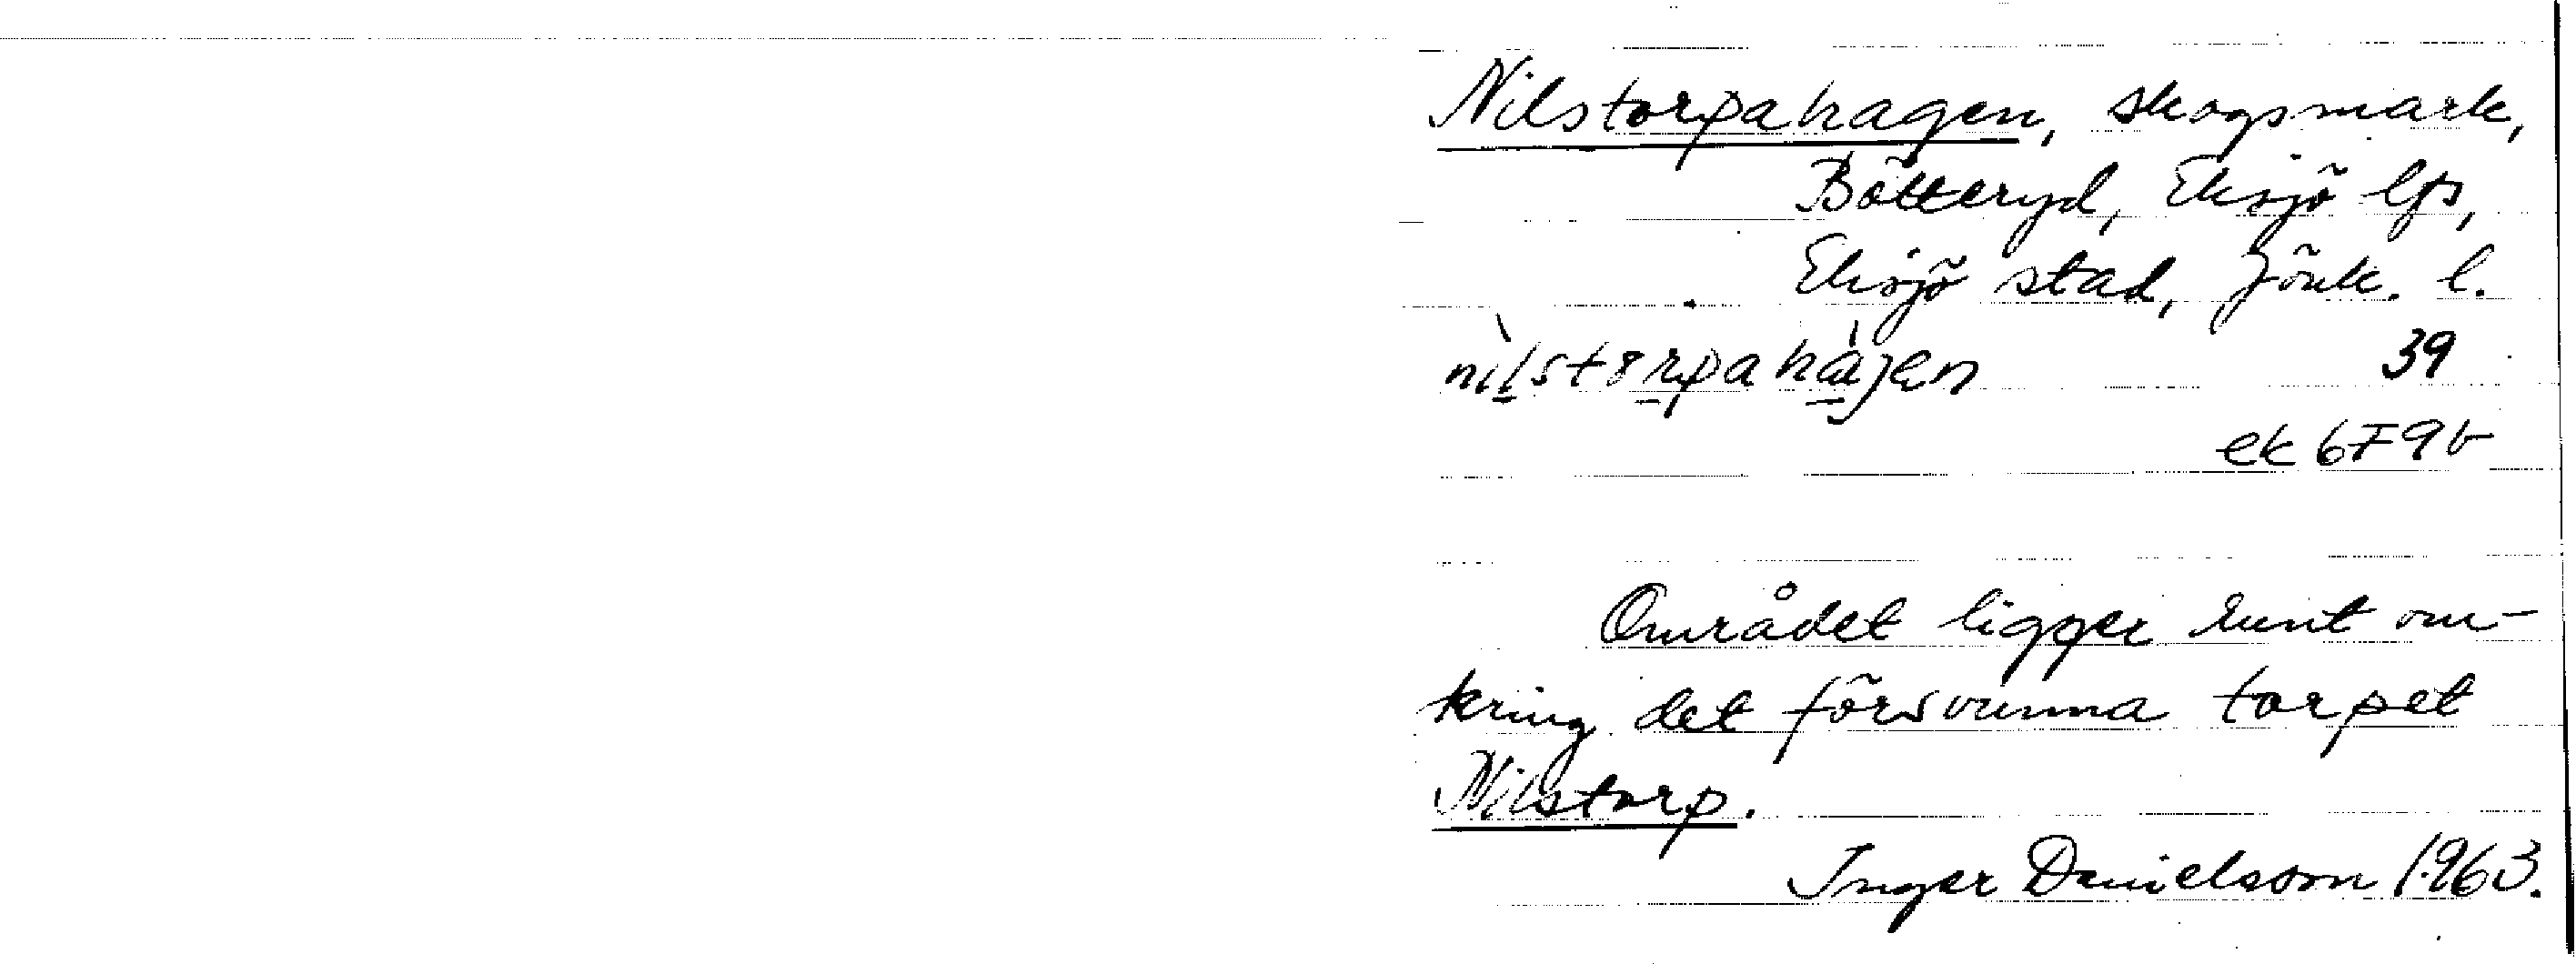 Nilstorpahagen, skogsmark,
Bötteryd, Eksjö lfs,
Eksjö stad, Jönk. l.
39
ek 6F9b
Området ligger runt om-
kring det försvunna torpet
Nilstorp.
Inger Danielsson 1963.